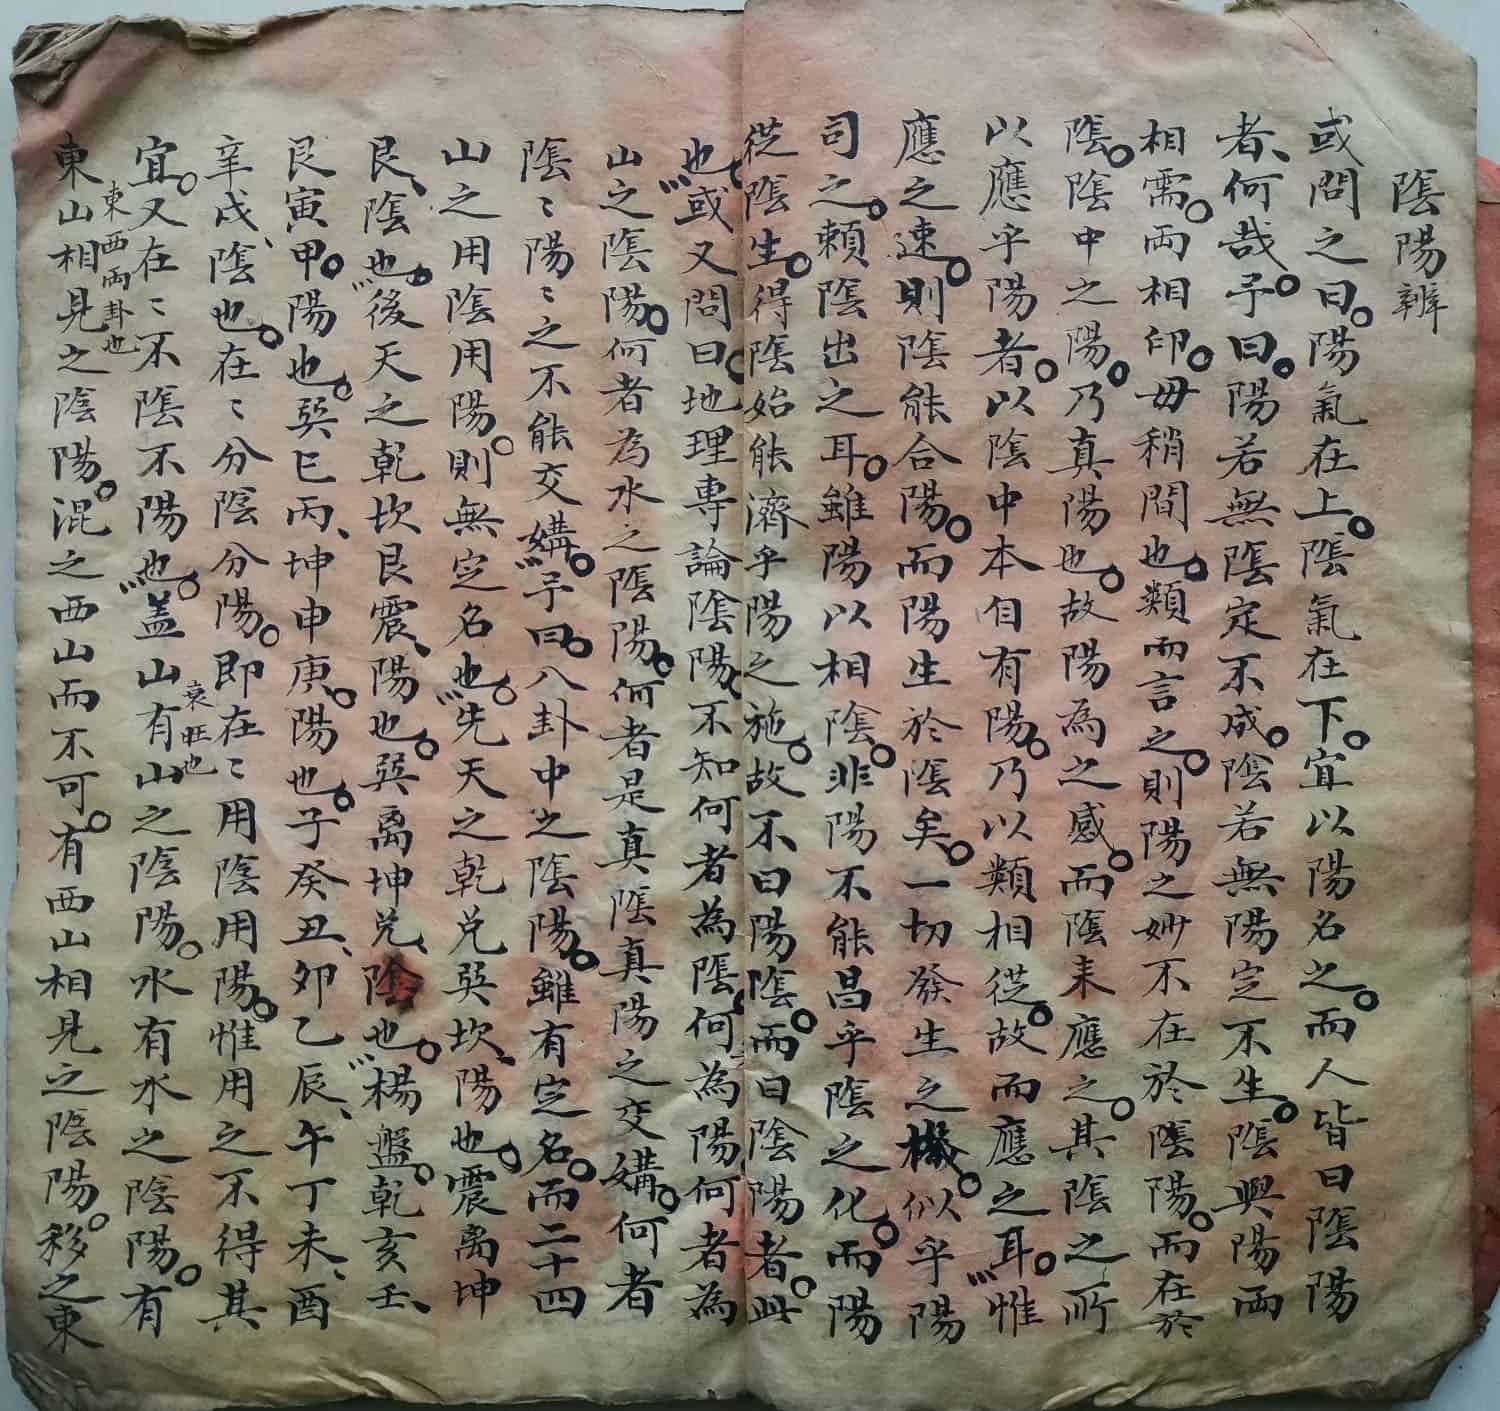 陰陽辨
或問之曰。陽氣在上。陰氣在下。宜以陽名之。而人皆曰陰陽
者、何哉。予曰。陽若無陰定不成。陰若無陽定不生。陰與陽両
相需。両相印。毋稍間也。類而言之。則陽之妙不在於陰陽。而在於
陰。陰中之陽。乃真陽也。故陽為之感。而陰来應之。其陰之所
以應乎陽者。以陰中本自有陽。乃以類相從。故而應之耳。惟
應之速。則陰能合陽。而陽生於陰矣。一切發生之機。似乎陽
司之。賴陰出之耳。雖陽以相陰。非陽不能昌乎陰之化。而陽
從陰生。得陰始能濟乎陽之施。故不曰陽陰。而曰陰陽者。此
也。或又問曰。地理專論陰陽、不知何者為陰、何為陽、何者為
山之陰陽。何者為水之陰陽。何者是真陰真陽之交媾。何者
陰〻陽〻之不能交媾。予曰。八卦中之陰陽。雖有定名。而二十四
山之用陰用陽。則無定名也。先天之乾兌巽坎、陽也。震离坤
艮、陰也。後天之乾坎艮震、陽也。巽离坤兌、陰也。楊盤。乾亥壬、
艮寅甲。陽也。巽巳丙、坤申庚。陽也。子癸丑、卯乙辰、午丁未、酉
辛戌、陰也。在〻分陰分陽。即在〻用陰用陽。惟用之不得其
衰旺也
宜。又在〻不陰不陽也。盖山有山之陰陽。水有水之陰陽。有
東西両卦也
東山相見之陰陽。混之西山而不可。有西山相見之陰陽。移之東